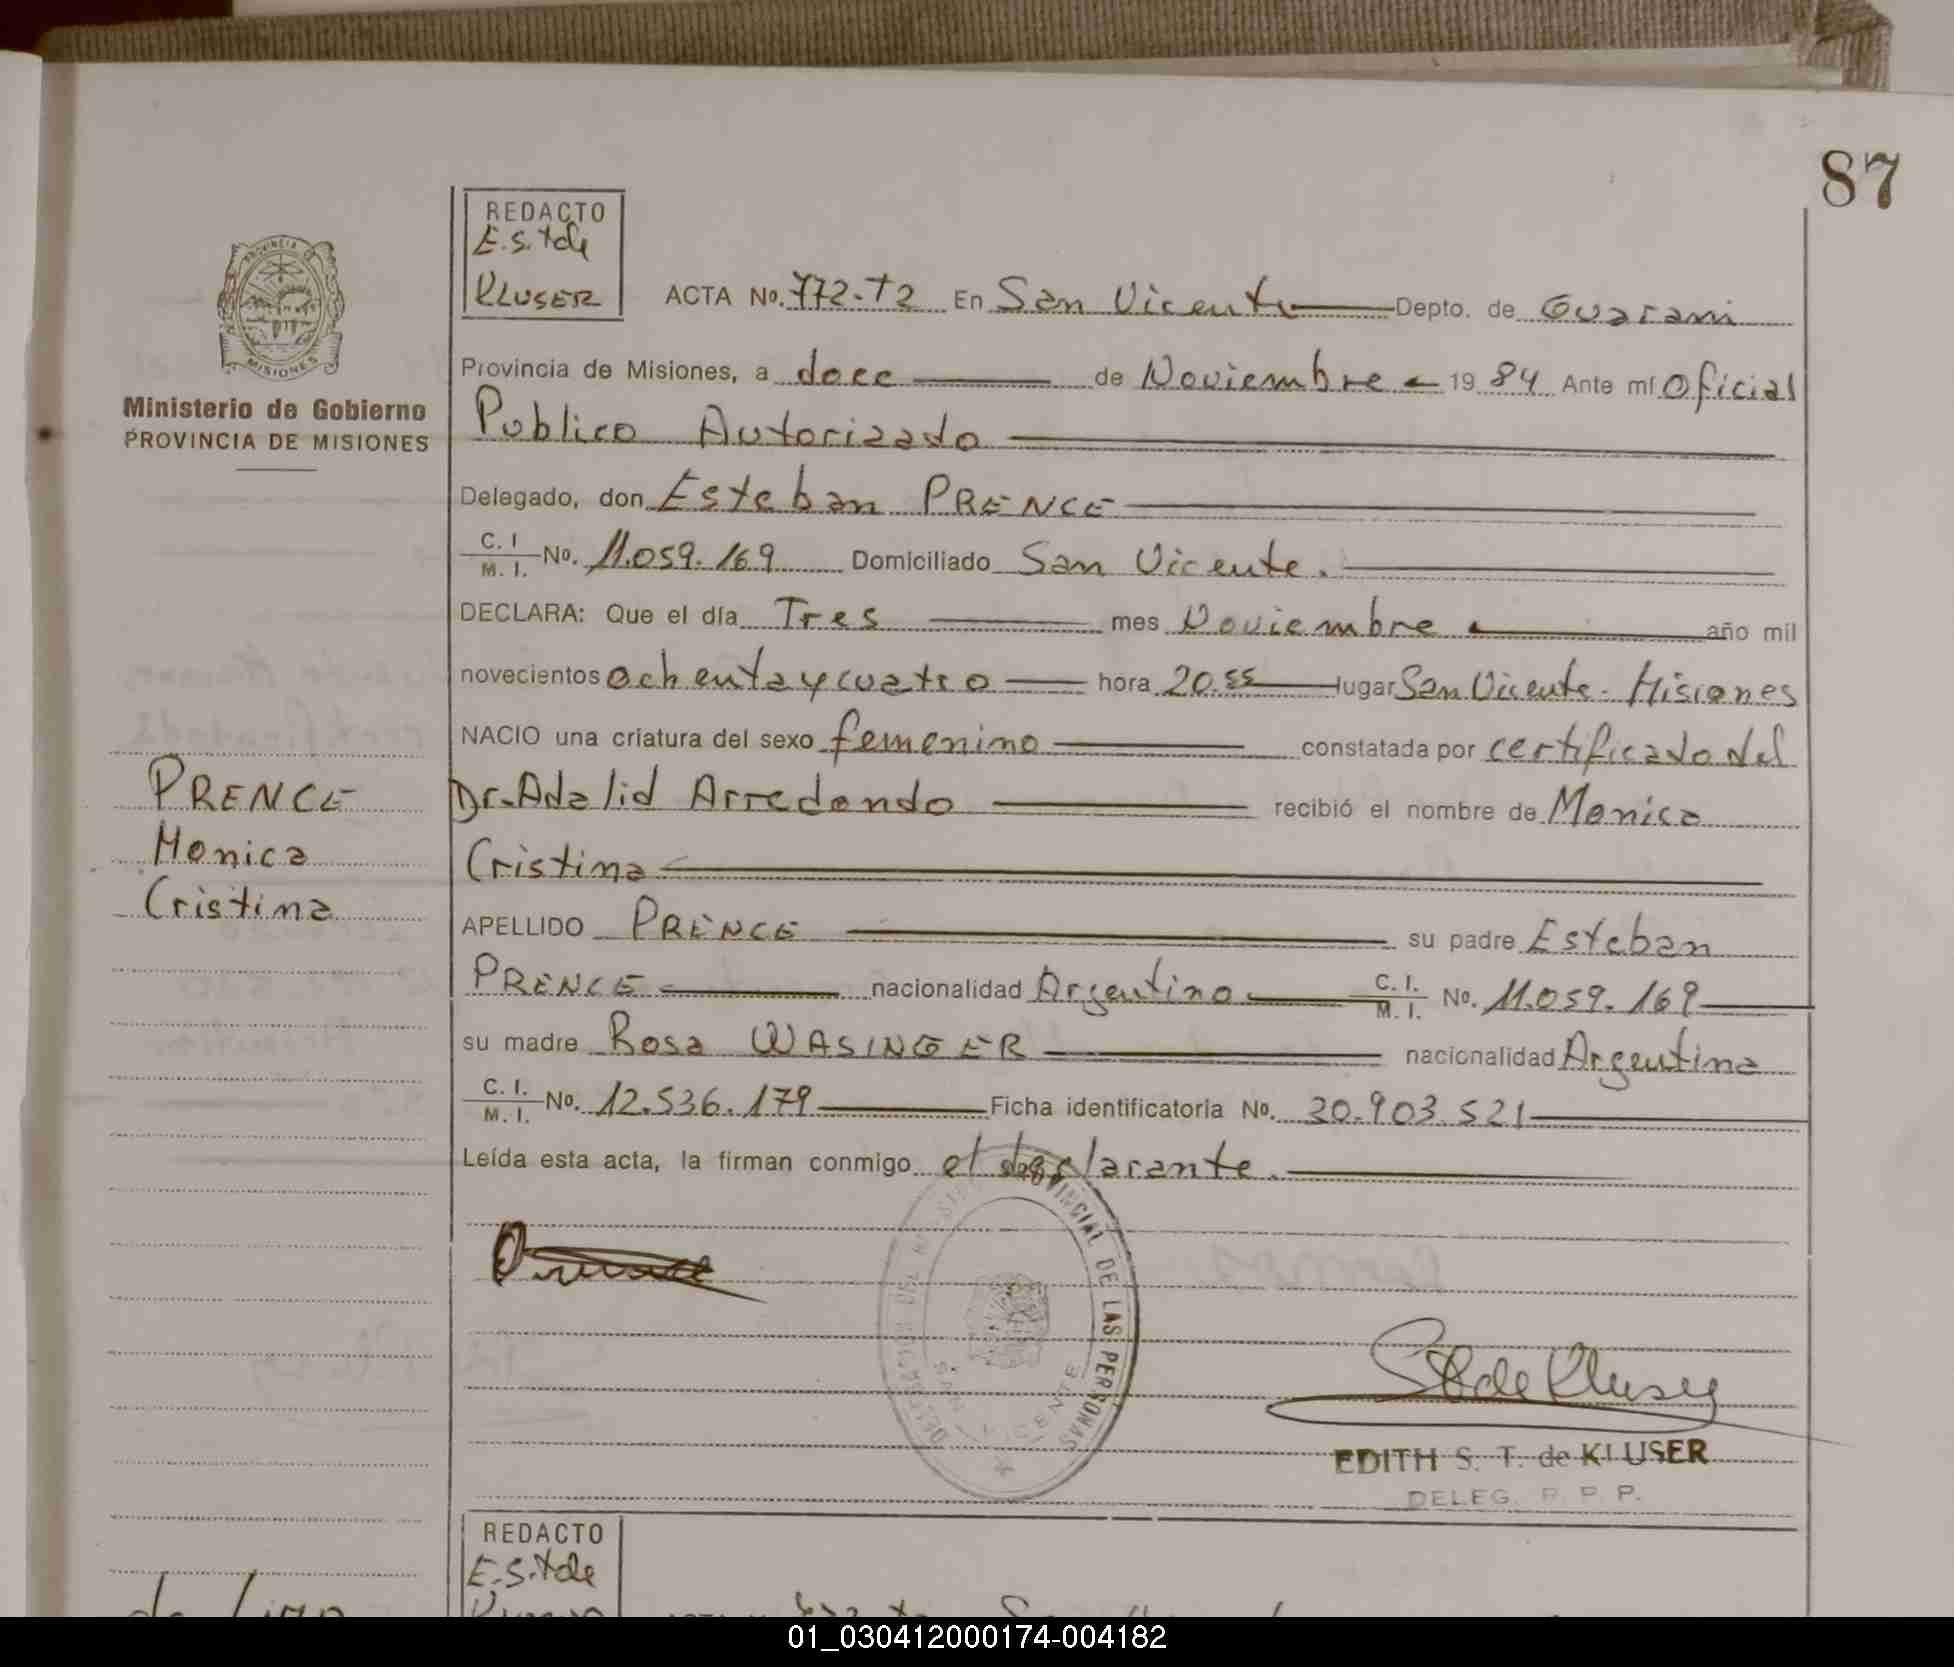 87
REDACTO
E.S.T de
KLUSER
ACTA No. 772-T2 En San Vicente Depto. de Guarani
PROVINCIA DE
MISIONES
Ministerio de Gobierno
PROVINCIA DE MISIONES
Provincia de Misiones, a doce de Noviembre 19 84 Ante mí Oficial
Publico Autorizado
Delegado, don Esteban PRENCE
C. I
M. I. No. 11.059.169 Domiciliado San Vicente.
DECLARA: Que el día Tres mes Noviembre año mil
novecientos ochenta y cuatro hora 20.55 lugar San Vicente - Misiones
NACIO una criatura del sexo femenino constatada por certificado del
Dr. Adalid Arredondo recibió el nombre de Monica
Cristina
PRENCE
Monica
Cristina
APELLIDO PRENCE su padre Esteban
PRENCE nacionalidad Argentino C. I.
M. I. No. 11.059.169
su madre Rosa WASINGER nacionalidad Argentina
C. I.
M. I. No. 12.536.179 Ficha identificatoria No. 30.903.521
Leída esta acta, la firman conmigo el declarante.
PROVINCIAL DE LAS PERSONAS
SAN VICENTE
STde Kluser
EDITH S. T. de KLUSER
DELEG. R. P. P.
REDACTO
E.S.T de
01_030412000174-004182